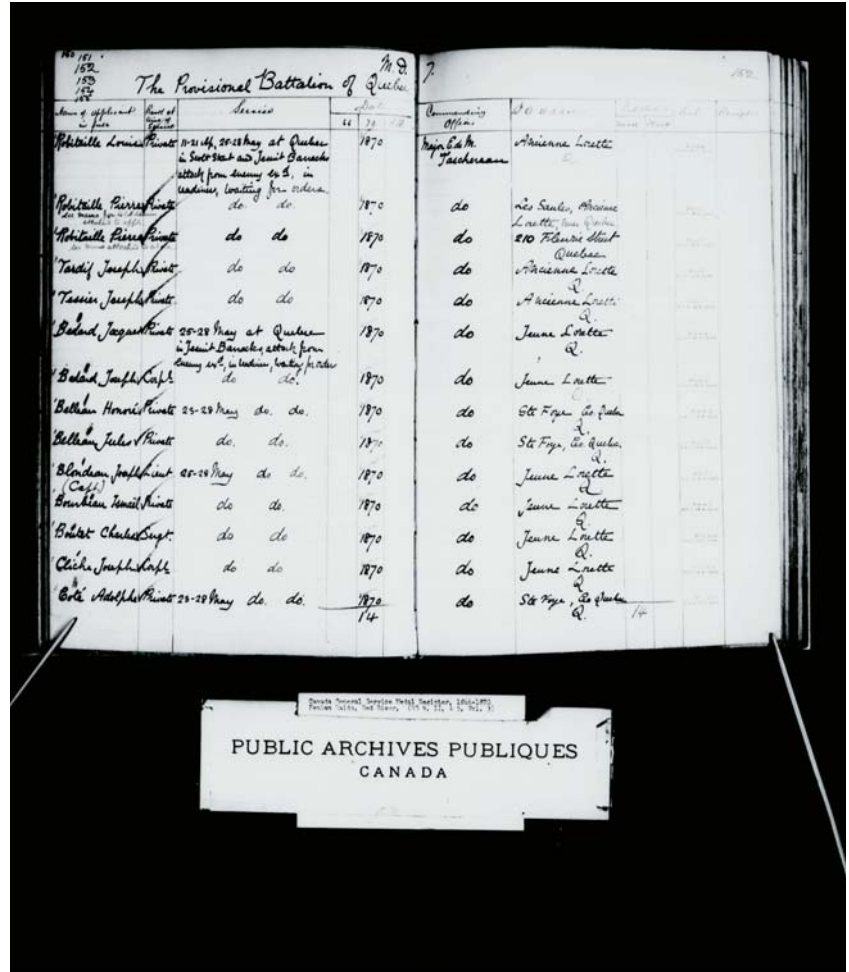 150 151
152
153
154
155
M. D. 7.
152
The Provisional Battalion of Quebec
Name of applicant in full
Rank at time of Service
Service
66 70
Commanding Officer
Robitaille Louis Private 11-21 Ap., 25-28 May at Quebec 1870 Major E. de M. Taschereau Ancienne Lorette
in Scott Street and Jesuit Barracks Q.
attack from enemy exd, in
readiness, waiting for orders.
Robitaille, Pierre Private do. do. 1870 do Les Saules, Ancienne
Lorette, near Quebec
Robitaille Pierre Private do do 1870 do 210 Fleurie Street
Quebec
Tardif Joseph Private do do 1870 do Ancienne Lorette
Q.
Tessier Joseph Private do do 1870 do Ancienne Lorette
Q.
Bedard, Jacques Private 25-28 May at Quebec 1870 do Jeune Lorette
in Jesuit Barracks, attack from Q.
enemy exd, in readiness, waiting for order
Bedard, Joseph Corpl. do do. 1870 do Jeune Lorette
Belleau Honoré Private 25-28 May do. do. 1870 do Ste Foye Co. Quebec
Q.
Belleau Jules Private do. do. 1870 do Ste Foye, Co. Quebec.
Q.
Blondeau Joseph Lieut 25-28 May do do. 1870 do Jeune Lorette
(Capt.) Q
Private do do. 1870 do Jeune Lorette
Q.
Boutet Charles Sergt. do do 1870 do Jeune Lorette
Q.
Cliche Joseph Corpl. do do 1870 do Jeune Lorette
Q
Coté Adolphe Private 25-28 May do. do. 1870 do Ste Foye, Co. Quebec
14 Q. 14
Canada General Service Medal Register, 1866-1870
Fenian Raids, Red River,
PUBLIC ARCHIVES PUBLIQUES
CANADA